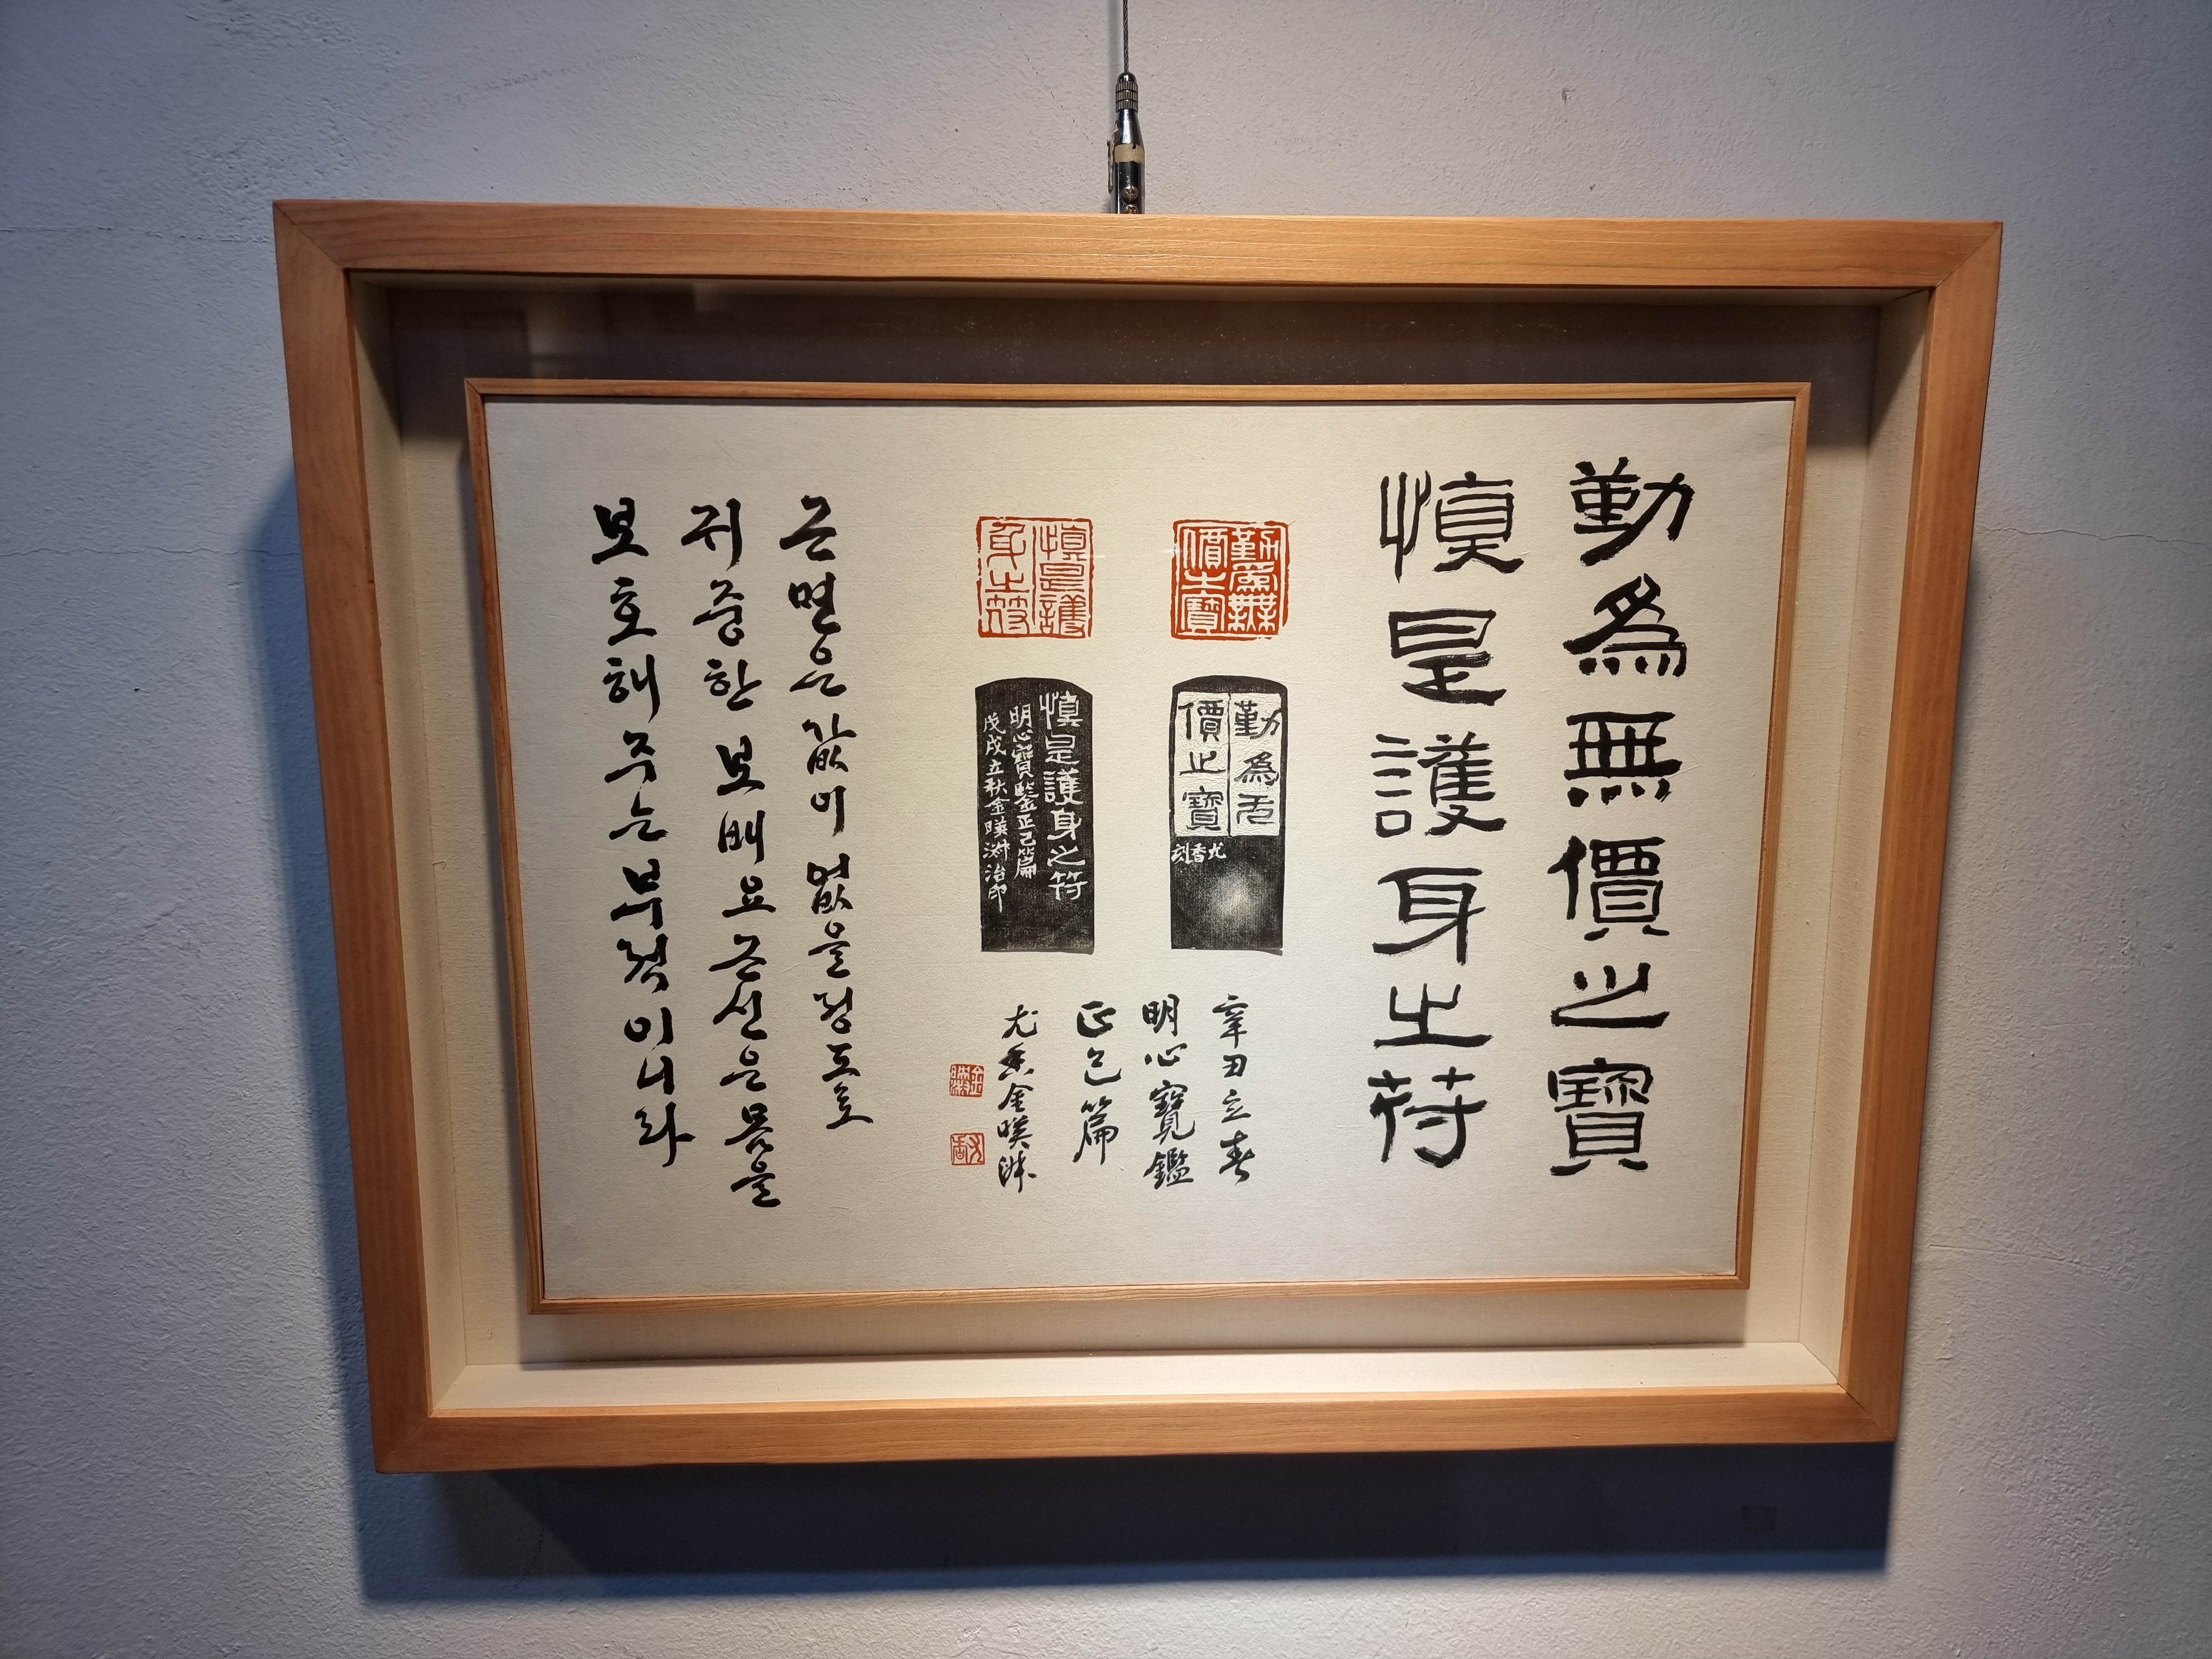 勤為無價之寶
慎是護身之符
勤為無
價之寶
慎是護
身之符
勤為无
價之寶
尤香刻
慎是護身之符
明心寶鑑正己篇
戊戌立秋金暎渊治印
辛丑立春
明心寶鑑
正己篇
尤香金暎渊
근면은값이없을정도로
귀중한보배요근신은몸을
보호해주는부적이니라